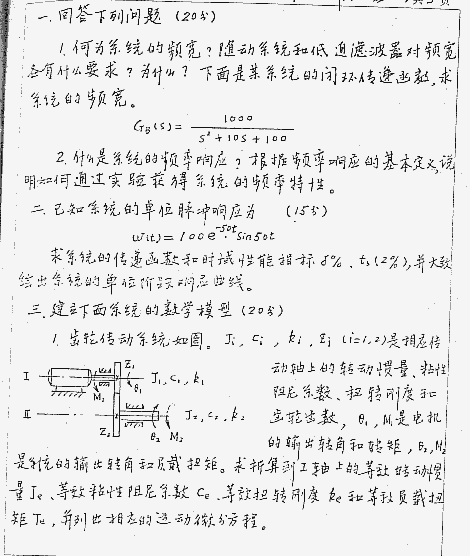 一.回答下列问题 (20分)
1.何为系统的频宽?随动系统和低通滤波器对频宽
各有什么要求?为什么?下面是某系统的闭环传递函数,求
系统的频宽。
G_B(s)= 1000 / (s²+10s+100)
2.什么是系统的频率响应?根据频率响应的基本定义,说
明如何通过实验获得系统的频率特性。
二.已知系统的单位脉冲响应为 (15分)
w(t)=100e^{-50t}sin50t
求系统的传递函数和时域性能指标δ%、ts(2%),并大致
绘出系统的单位阶跃响应曲线。
三.建立下面系统的数学模型 (20分)
1.齿轮传动系统如图。Ji,ci,ki,Zi (i=1,2)是相应传
动轴上的转动惯量、粘性
阻尼系数、扭转刚度和
齿轮齿数,θ1,M1是电机
的输出转角和转矩,θ2,M2
是系统的输出转角和负载扭矩。求折算到I轴上的等效转动惯
量Je、等效粘性阻尼系数ce、等效扭转刚度ke和等效负载扭
矩,并列出相应的运动微分方程。
Z1
I
θ1
J1,c1,k1
M1
II
J2,c2,k2
Z2
θ2
M2